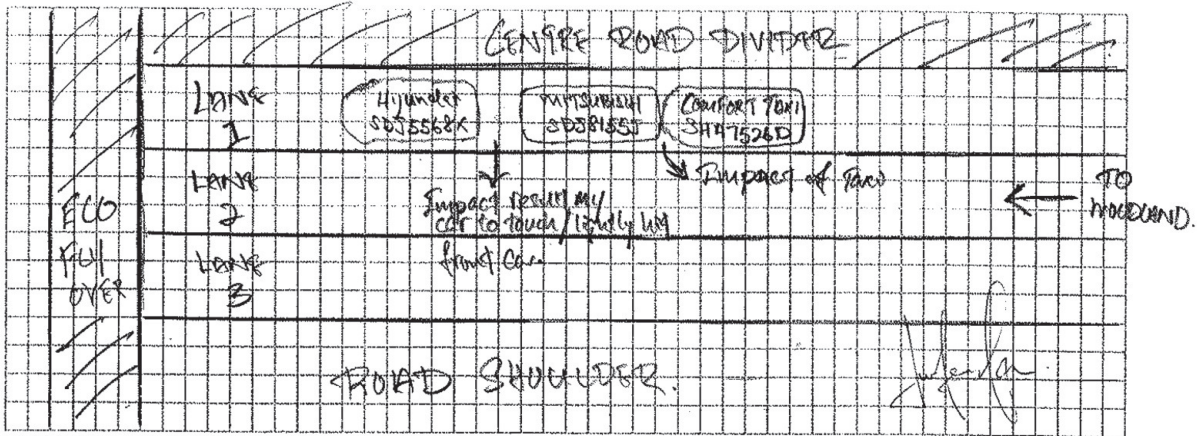 CENTRE ROAD DIVIDER
LANE
1
Hyundai
SDJ5568K
MITSUBISHI
SDJ8155J
COMFORT TAXI
SHA7526D
LANE
2
Impact result my
car to touch / lightly hit
front car.
Impact of Taxi
TO
WOODLAND.
ECO
FLY
OVER
LANE
3
ROAD SHOULDER.